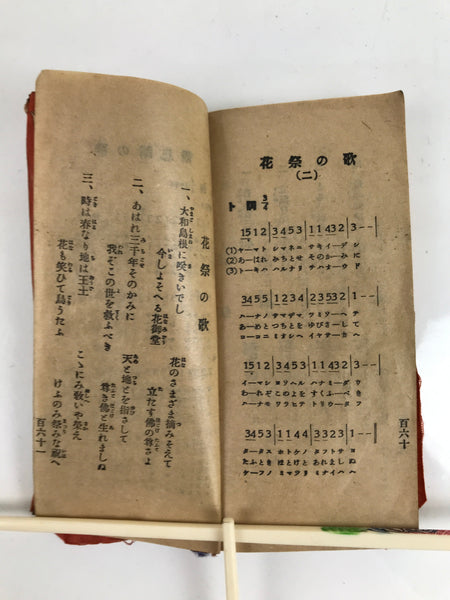 花祭の歌
(二)
ト調
1512 3453 11432 3--
(1)ヤーマト シマネニ サキイーデ シ
(2)あーはれ みちとせ そのかーみ に
(3)トーキハ ハルナリ チハオーウ ド
3455 1212 23532 1--
ハーナノ サマザマ ツミソーヘ テ
あーめと つちとを ゆびさーし て
1512 3453 11432 3--
イーマシ ヨソヘル ハナミーダ ウ
わーれぞ このよを すくふーべ き
3453 1144 33323 1--
たーふとき ほとけと あれまし ぬ
ケーフノ ミマツリ ミナイハ ヘ
百六十
花祭の歌
一、大和島根に咲きいでし
花のさまざま摘みそえて
今しよそへる花御堂
立たす佛の尊さよ
二、あはれ三千年そのかみに
天と地とを指さして
我ぞこの世を救ふべき
尊き佛と生れましぬ
三、時は春なり地は王土
こゝにみ敎いや榮え
花も笑ひて鳥うたふ
けふのみ祭みな祝へ
百六十一